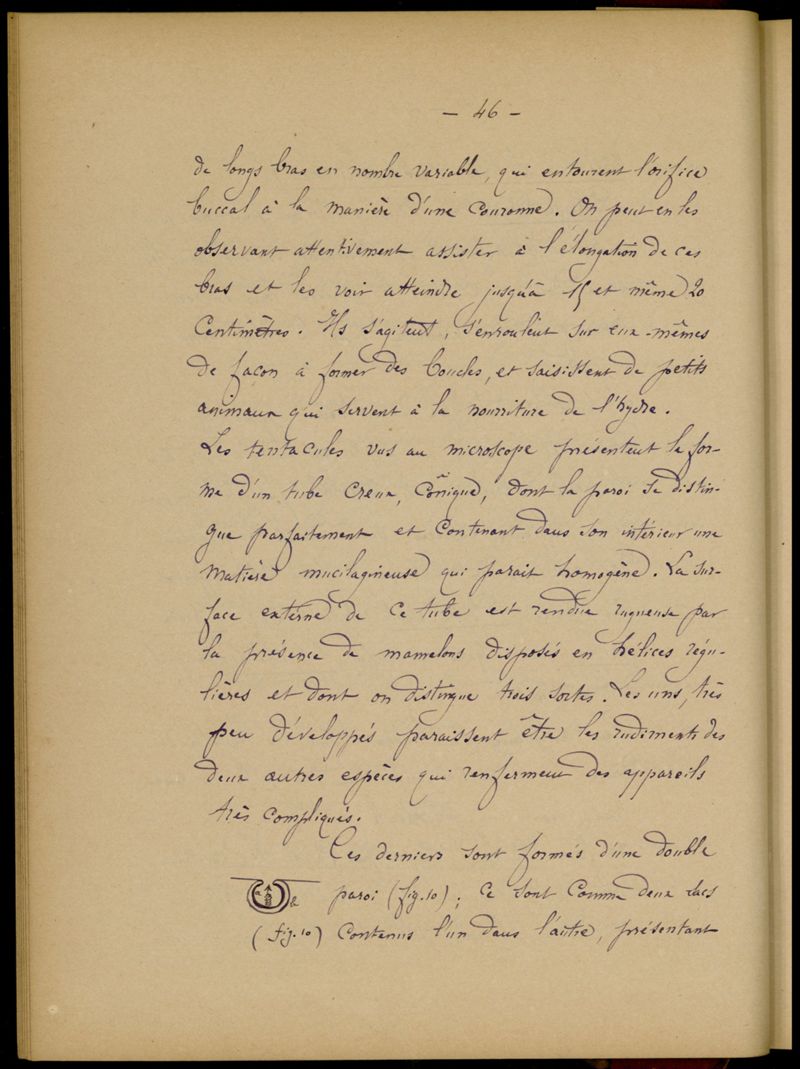 — 46 —
de longs bras en nombre variable, qui entourent l'orifice
buccal à la manière d'une couronne. On peut en les
observant attentivement assister à l'élongation de ces
bras et les voir atteindre jusqu'à 15 et même 20
Centimètres. Ils s'agitent, s'enroulent sur eux-mêmes
de façon à former des boucles, et saisissent de petits
animaux qui servent à la nourriture de l'hydre.
Les tentacules vus au microscope présentent la for-
me d'un tube creux, cônique, dont la paroi se distin-
gue parfaitement et contenant dans son intérieur une
matière mucilagineuse qui parait homogène. La sur-
face externe de ce tube est rendue rugueuse par
la présence de mamelons disposés en hélices régu-
lières et dont on distingue trois sortes. Les uns, très
peu développés paraissent être les rudiments des
deux autres espèces qui renferment des appareils
très compliqués.
Ces derniers sont formés d'une double
paroi (fig. 10); ce sont comme deux sacs
(fig. 10) contenus l'un dans l'autre, présentant